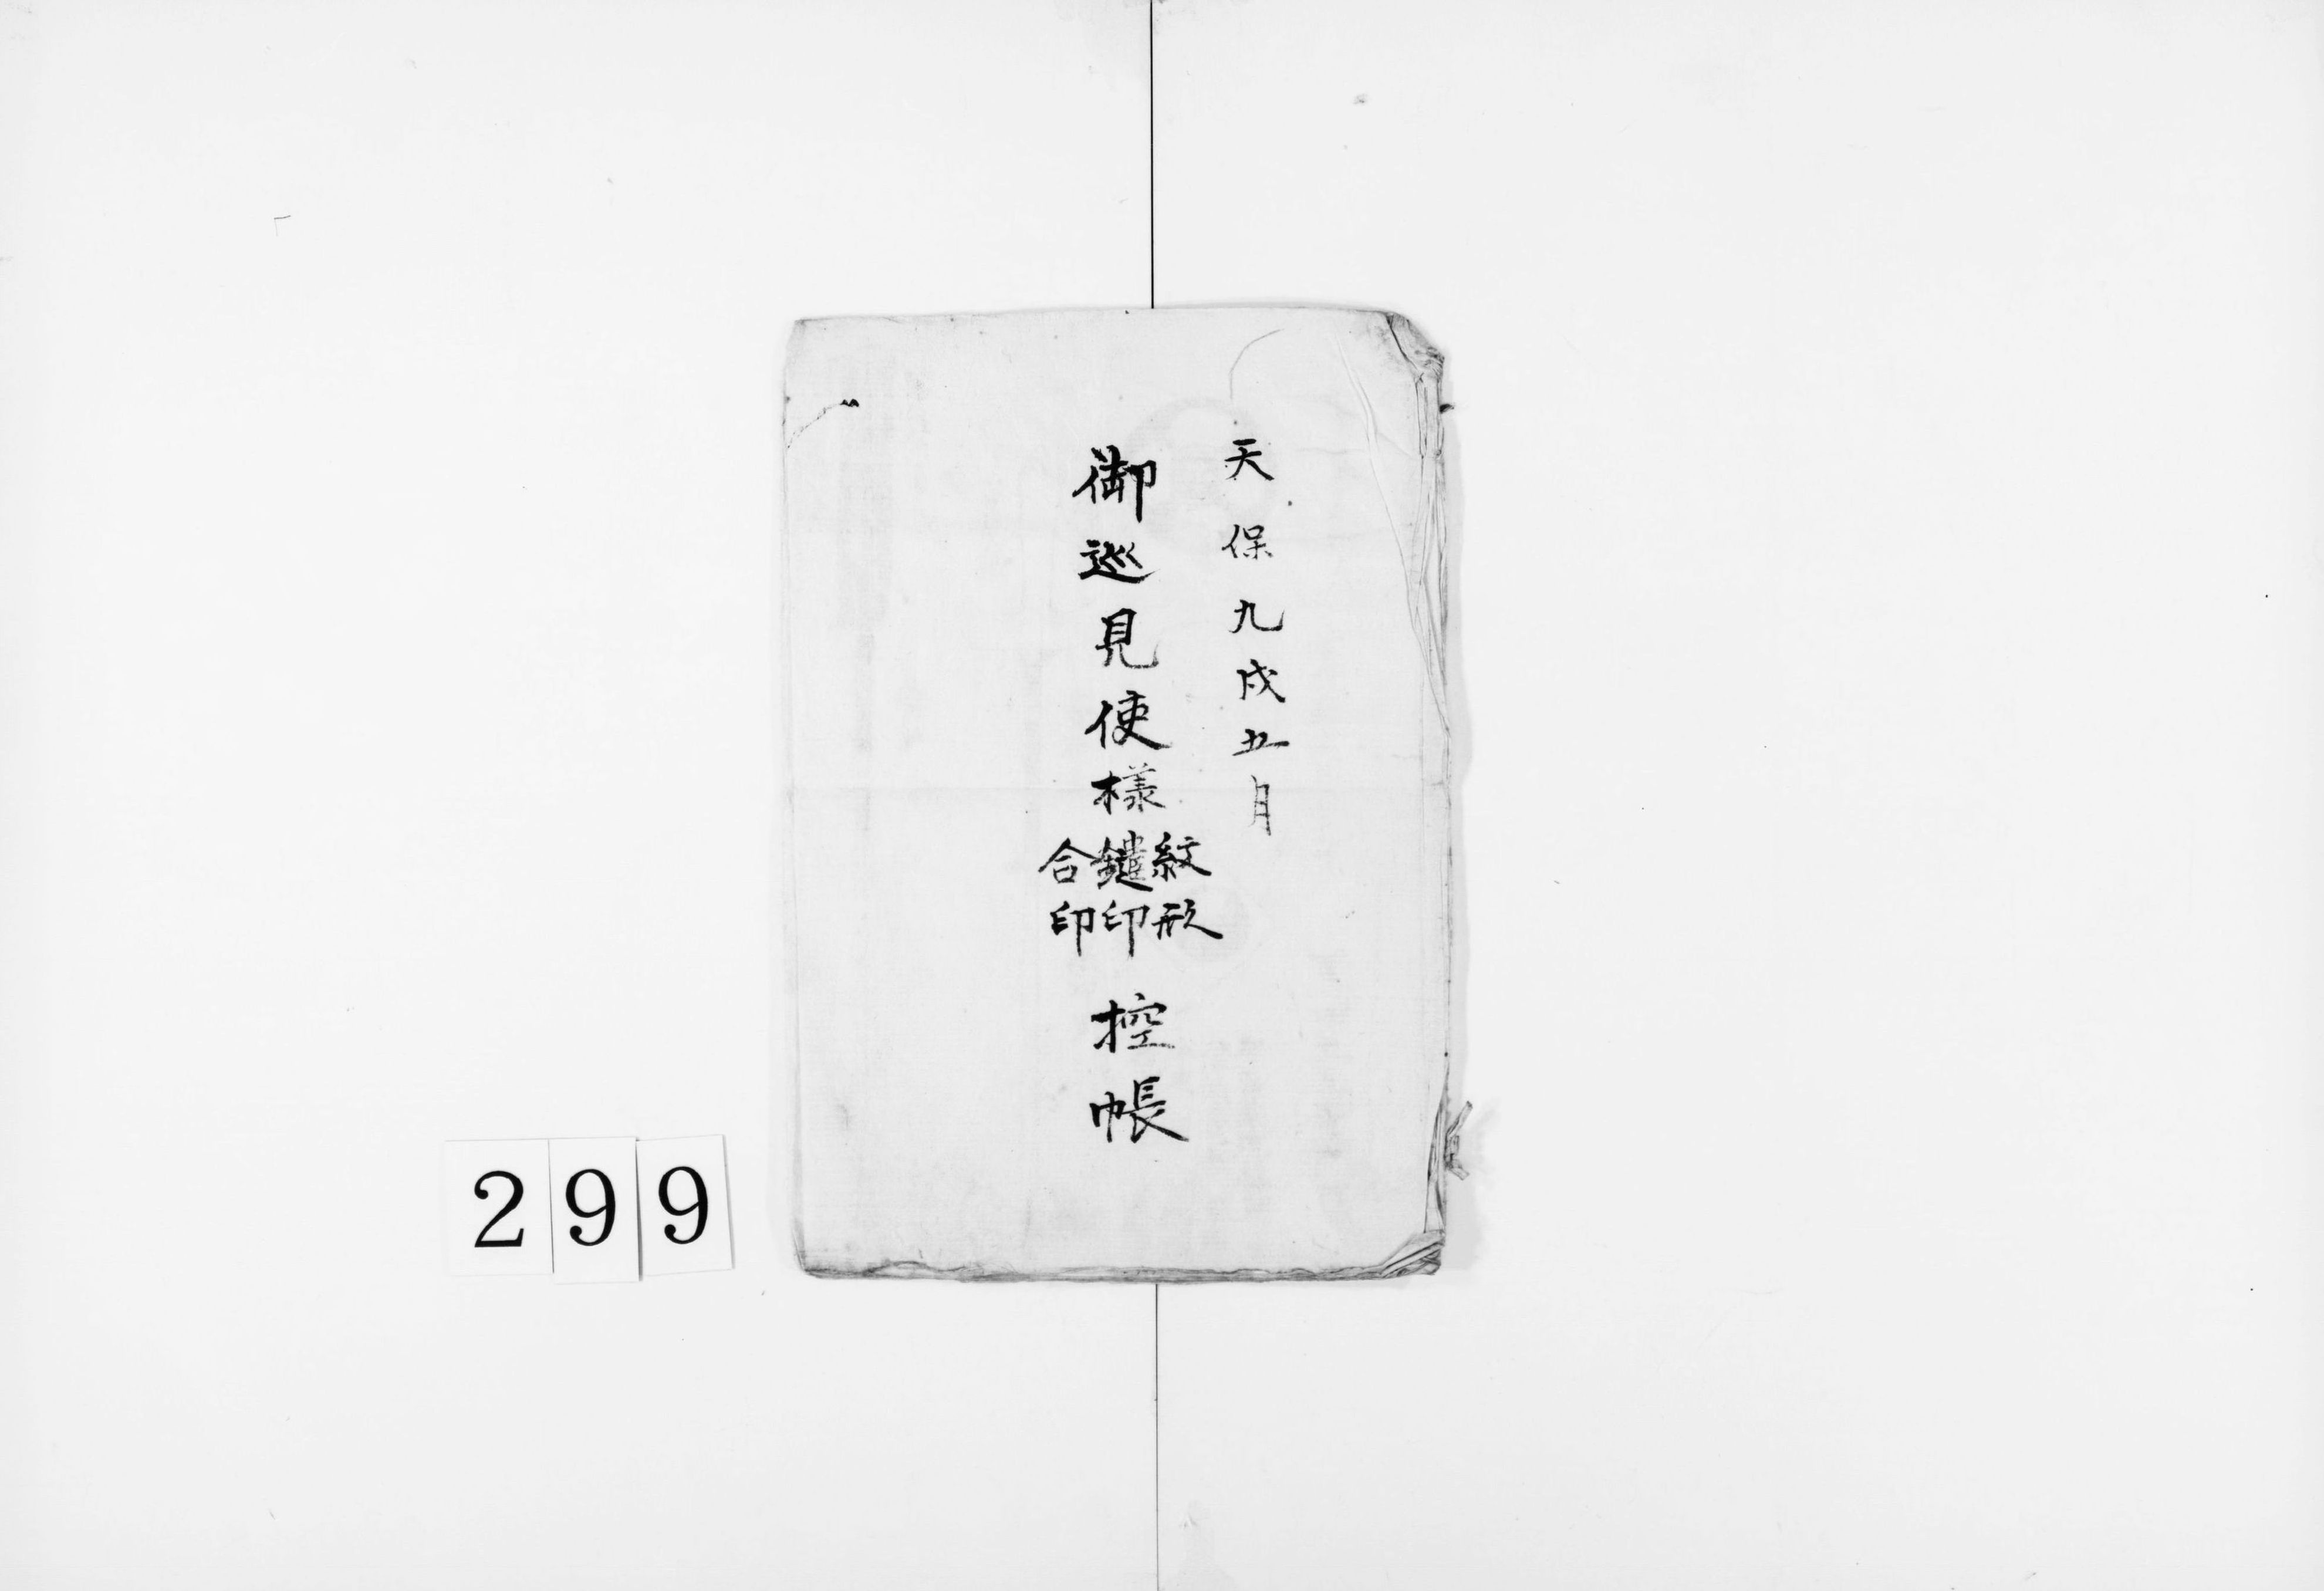 天保九戌五月
御巡見使様
紋形
鑓印
合印
控帳
299